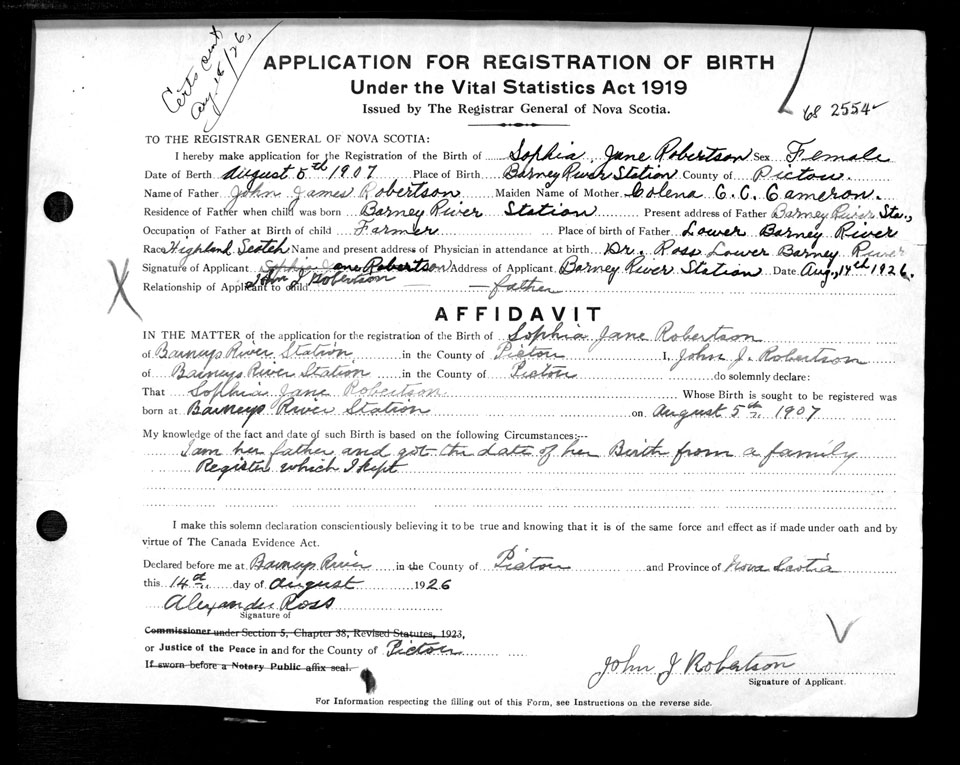 Certs sent
Aug. 18/26,
APPLICATION FOR REGISTRATION OF BIRTH
Under the Vital Statistics Act 1919
Issued by The Registrar General of Nova Scotia.
68 2554
TO THE REGISTRAR GENERAL OF NOVA SCOTIA:
I hereby make application for the Registration of the Birth of Sophia Jane Robertson Sex Female
Date of Berth August 5th 1907 Place of Birth Barney River Station County of Pictou.
Name of Father John James Robertson Maiden Name of Mother Colena C. C. Cameron.
Residence of Father when child was born Barney River Station Present address of Father Barney River Sta.,
Occupation of Father at Birth of child Farmer Place of birth of Father Lower Barney River
Race Highland Scotch Name and present address of Physician in attendance at birth Dr. Ross Lower Barney River
Signature of Applicant Sophia Jane Robertson Address of Applicant Barney River Station Date Aug, 14th 1926.
John J Robertson
Relationship of Applicant to child — — father
AFFIDAVIT
IN THE MATTER of the application for the registration of the Birth of Sophia Jane Robertson
of Barneys River Station in the County of Pictou I, John J. Robertson
of Barneys River Station in the County of Pictou do solemnly declare:
That Sophia Jane Robertson Whose Birth is sought to be registered was
born at Barneys River Station on August 5th 1907
My knowledge of the fact and date of such Birth is based on the following Circumstances:--
I am her father and got the date of her Birth from a family
Register which I kept
I make this solemn declaration conscientiously believing it to be true and knowing that it is of the same force and effect as if made under oath and by
virtue of The Canada Evidence Act.
Declared before me at Barneys River in the County of Pictou and Province of Nova Scotia
this 14th day of August 1926
Alexander Ross
Signature of
Commissioner under Section 5, Chapter 38, Revised Statutes, 1923,
or Justice of the Peace in and for the County of Pictou
If sworn before a Notary Public affix seal.
John J Robertson
Signature of Applicant.
For Information respecting the filling out of this Form, see Instructions on the reverse side.